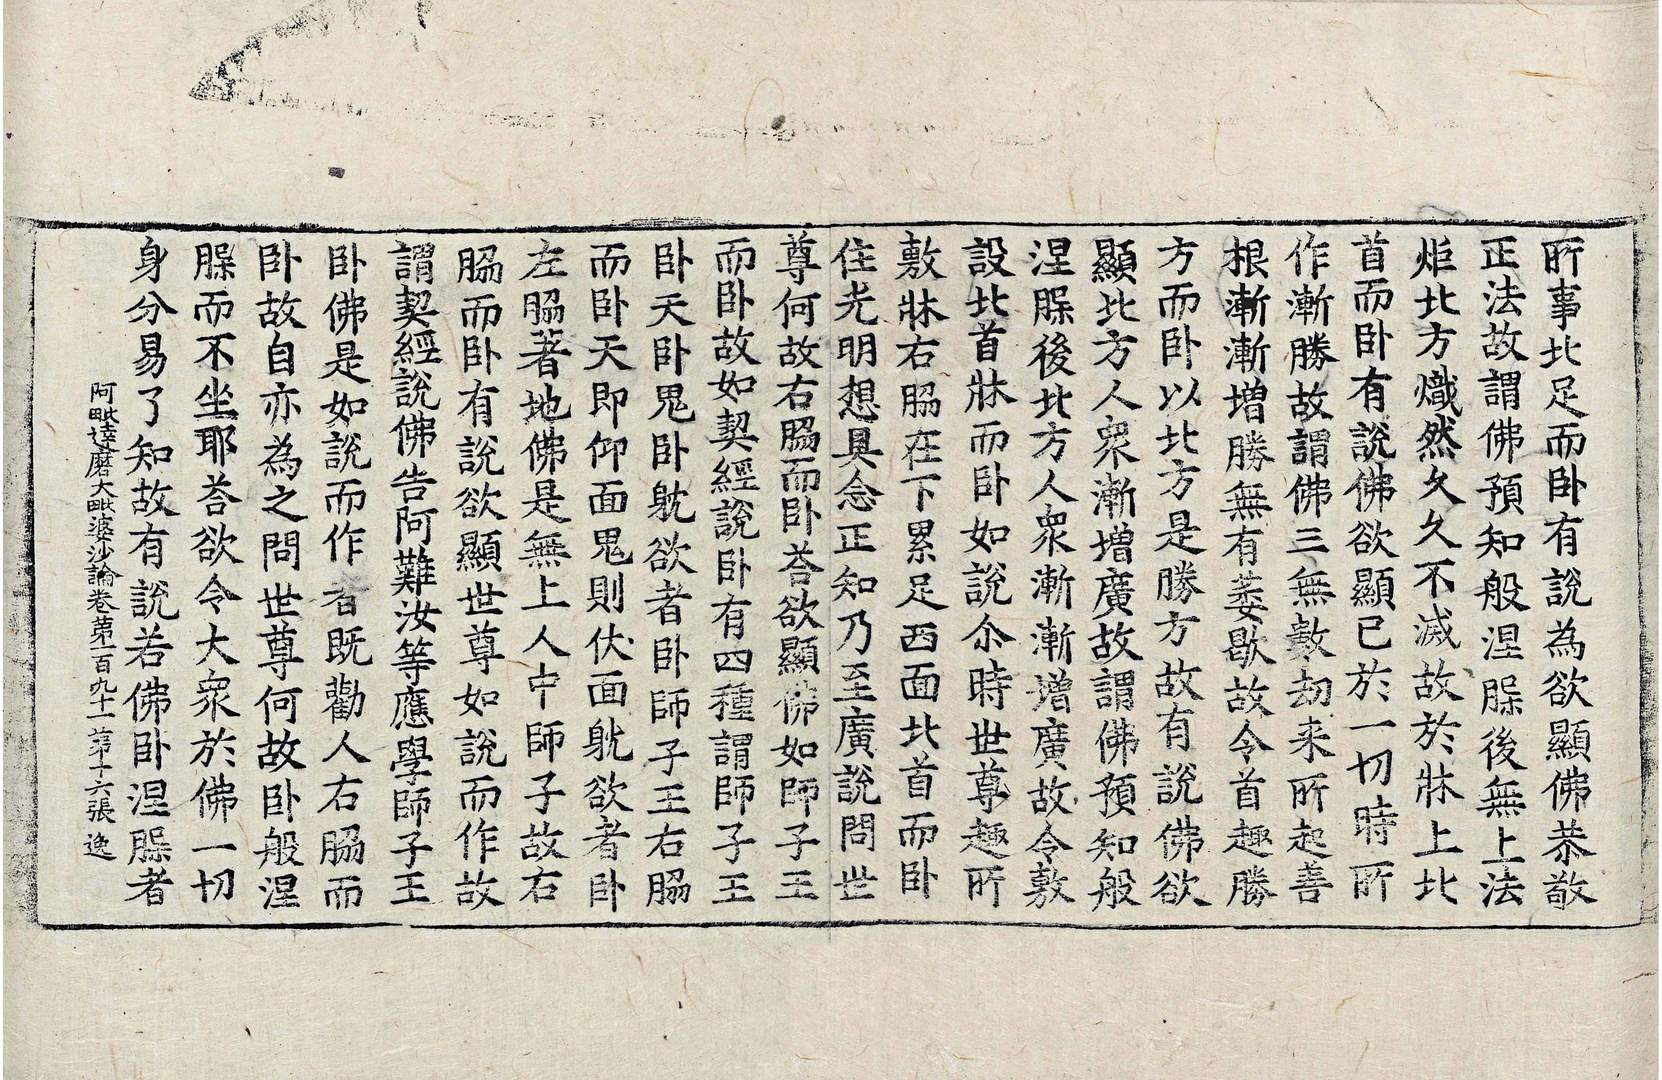 所事北足而卧有說為欲顯佛恭敬
正法故謂佛預知般涅槃後無上法
炬北方熾然久久不滅故於牀上北
首而卧有說佛欲顯已於一切時所
作漸勝故謂佛三無數劫来所起善
根漸漸增勝無有萎歇故令首趣勝
方而卧以北方是勝方故有說佛欲
顯北方人衆漸增廣故謂佛預知般
涅槃後北方人衆漸漸增廣故令敷
設北首牀而卧如說尒時世尊趣所
敷牀右脇在下累足西面北首而卧
住光明想具念正知乃至廣說問世
尊何故右脇而卧荅欲顯佛如師子王
而卧故如契經說卧有四種謂師子王
卧天卧鬼卧躭欲者卧師子王右脇
而卧天即仰面鬼則伏面躭欲者卧
左脇著地佛是無上人中師子故右
脇而卧有說欲顯世尊如說而作故
謂契經說佛告阿難汝等應學師子王
卧佛是如說而作者既勸人右脇而
卧故自亦為之問世尊何故卧般涅
槃而不坐耶荅欲令大衆於佛一切
身分易了知故有說若佛卧涅槃者
阿毗達磨大毗婆沙論卷第一百九十一 第十六張 逸